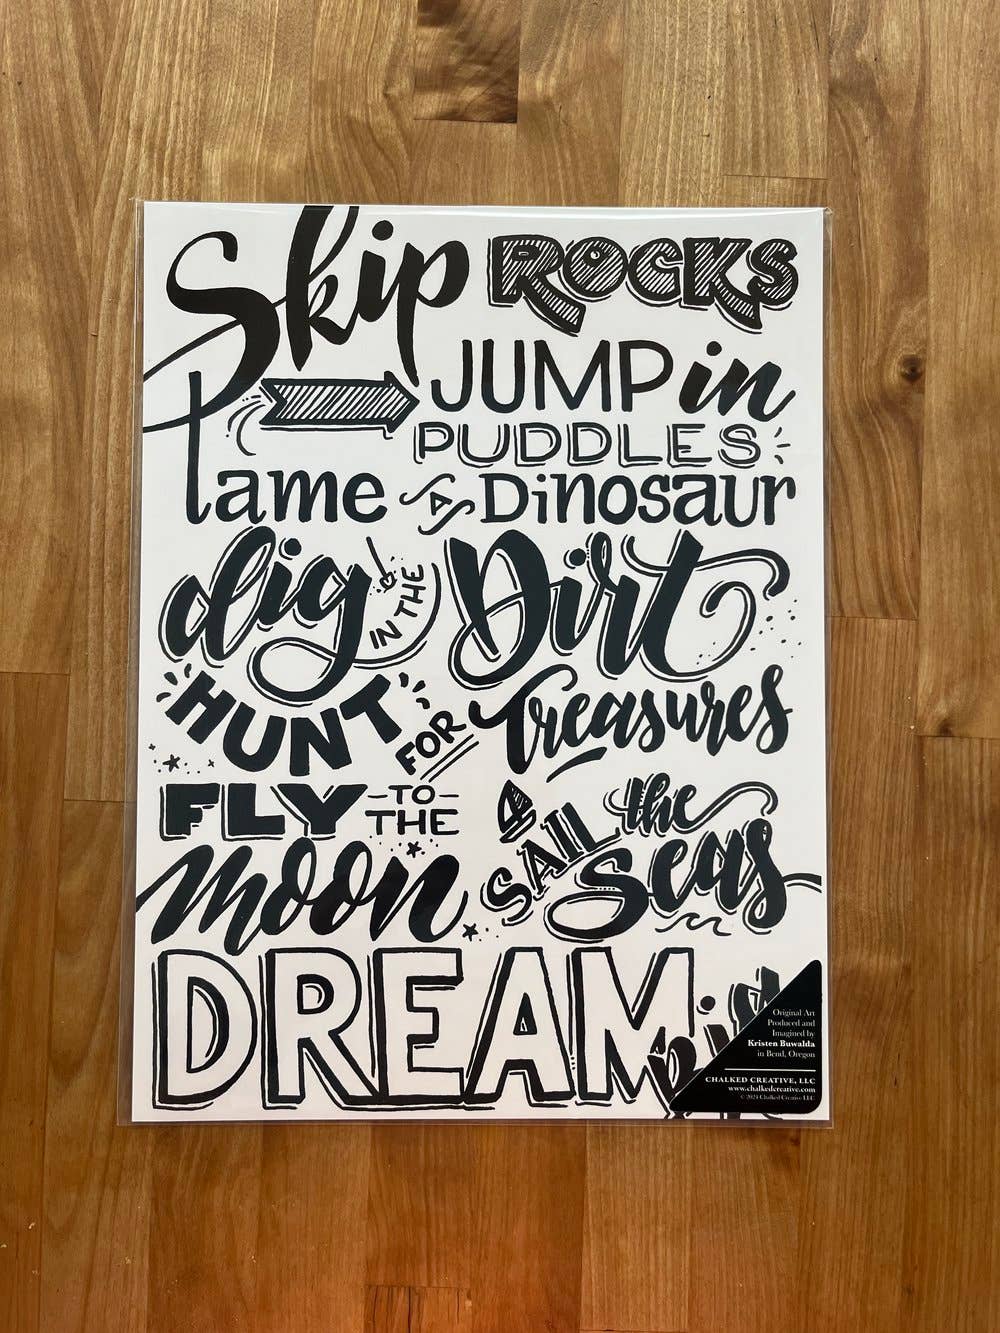 Skip ROCKS
JUMP in
PUDDLES
Tame A Dinosaur
dig IN THE Dirt
HUNT FOR Treasures
FLY TO THE
moon
SAIL the
Seas
DREAM
Original Art
Produced and
Imagined by
Kristen Buwalda
in Bend, Oregon
CHALKED CREATIVE, LLC
www.chalkedcreative.com
© 2024 Chalked Creative LLC